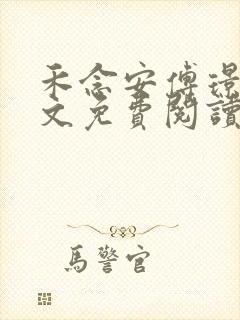 禾念安傅璟
文免費閱讀
馬警官